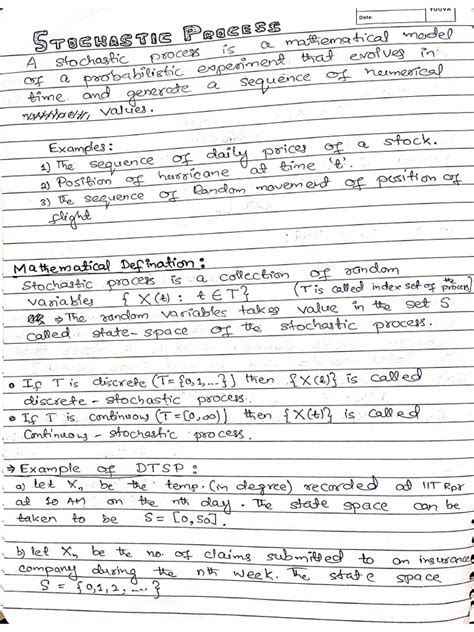 YUUVA
Date:
STOCHASTIC PROCESS
A stochastic process is a mathematical model
of a probabilistic experiment that evolves in
time and generate a sequence of numerical
values.
Examples:
1) The sequence of daily prices of a stock.
2) Position of hurricane at time 't'.
3) The sequence of Random movement of position of
flight
Mathematical Defination:
Stochastic process is a collection of random
variables { X(t) : t ∈ T } (T is called index set of the process)
⇒ The random variables takes value in the set S
called state-space of the stochastic process.
• If T is discrete (T = {0,1,...}) then {X(t)} is called
discrete - stochastic process.
• If T is continuous (T = [0,∞)) then {X(t)} is called
Continuous - stochastic process.
→ Example of DTSP :
a) let Xn be the temp. (in degree) recorded at IIT Rpr
at 10 AM on the nth day. The state space can be
taken to be S = [0,50].
b) let Xn be the no. of claims submitted to an insurance
company during the nth week. The state space
S = {0,1,2,...}